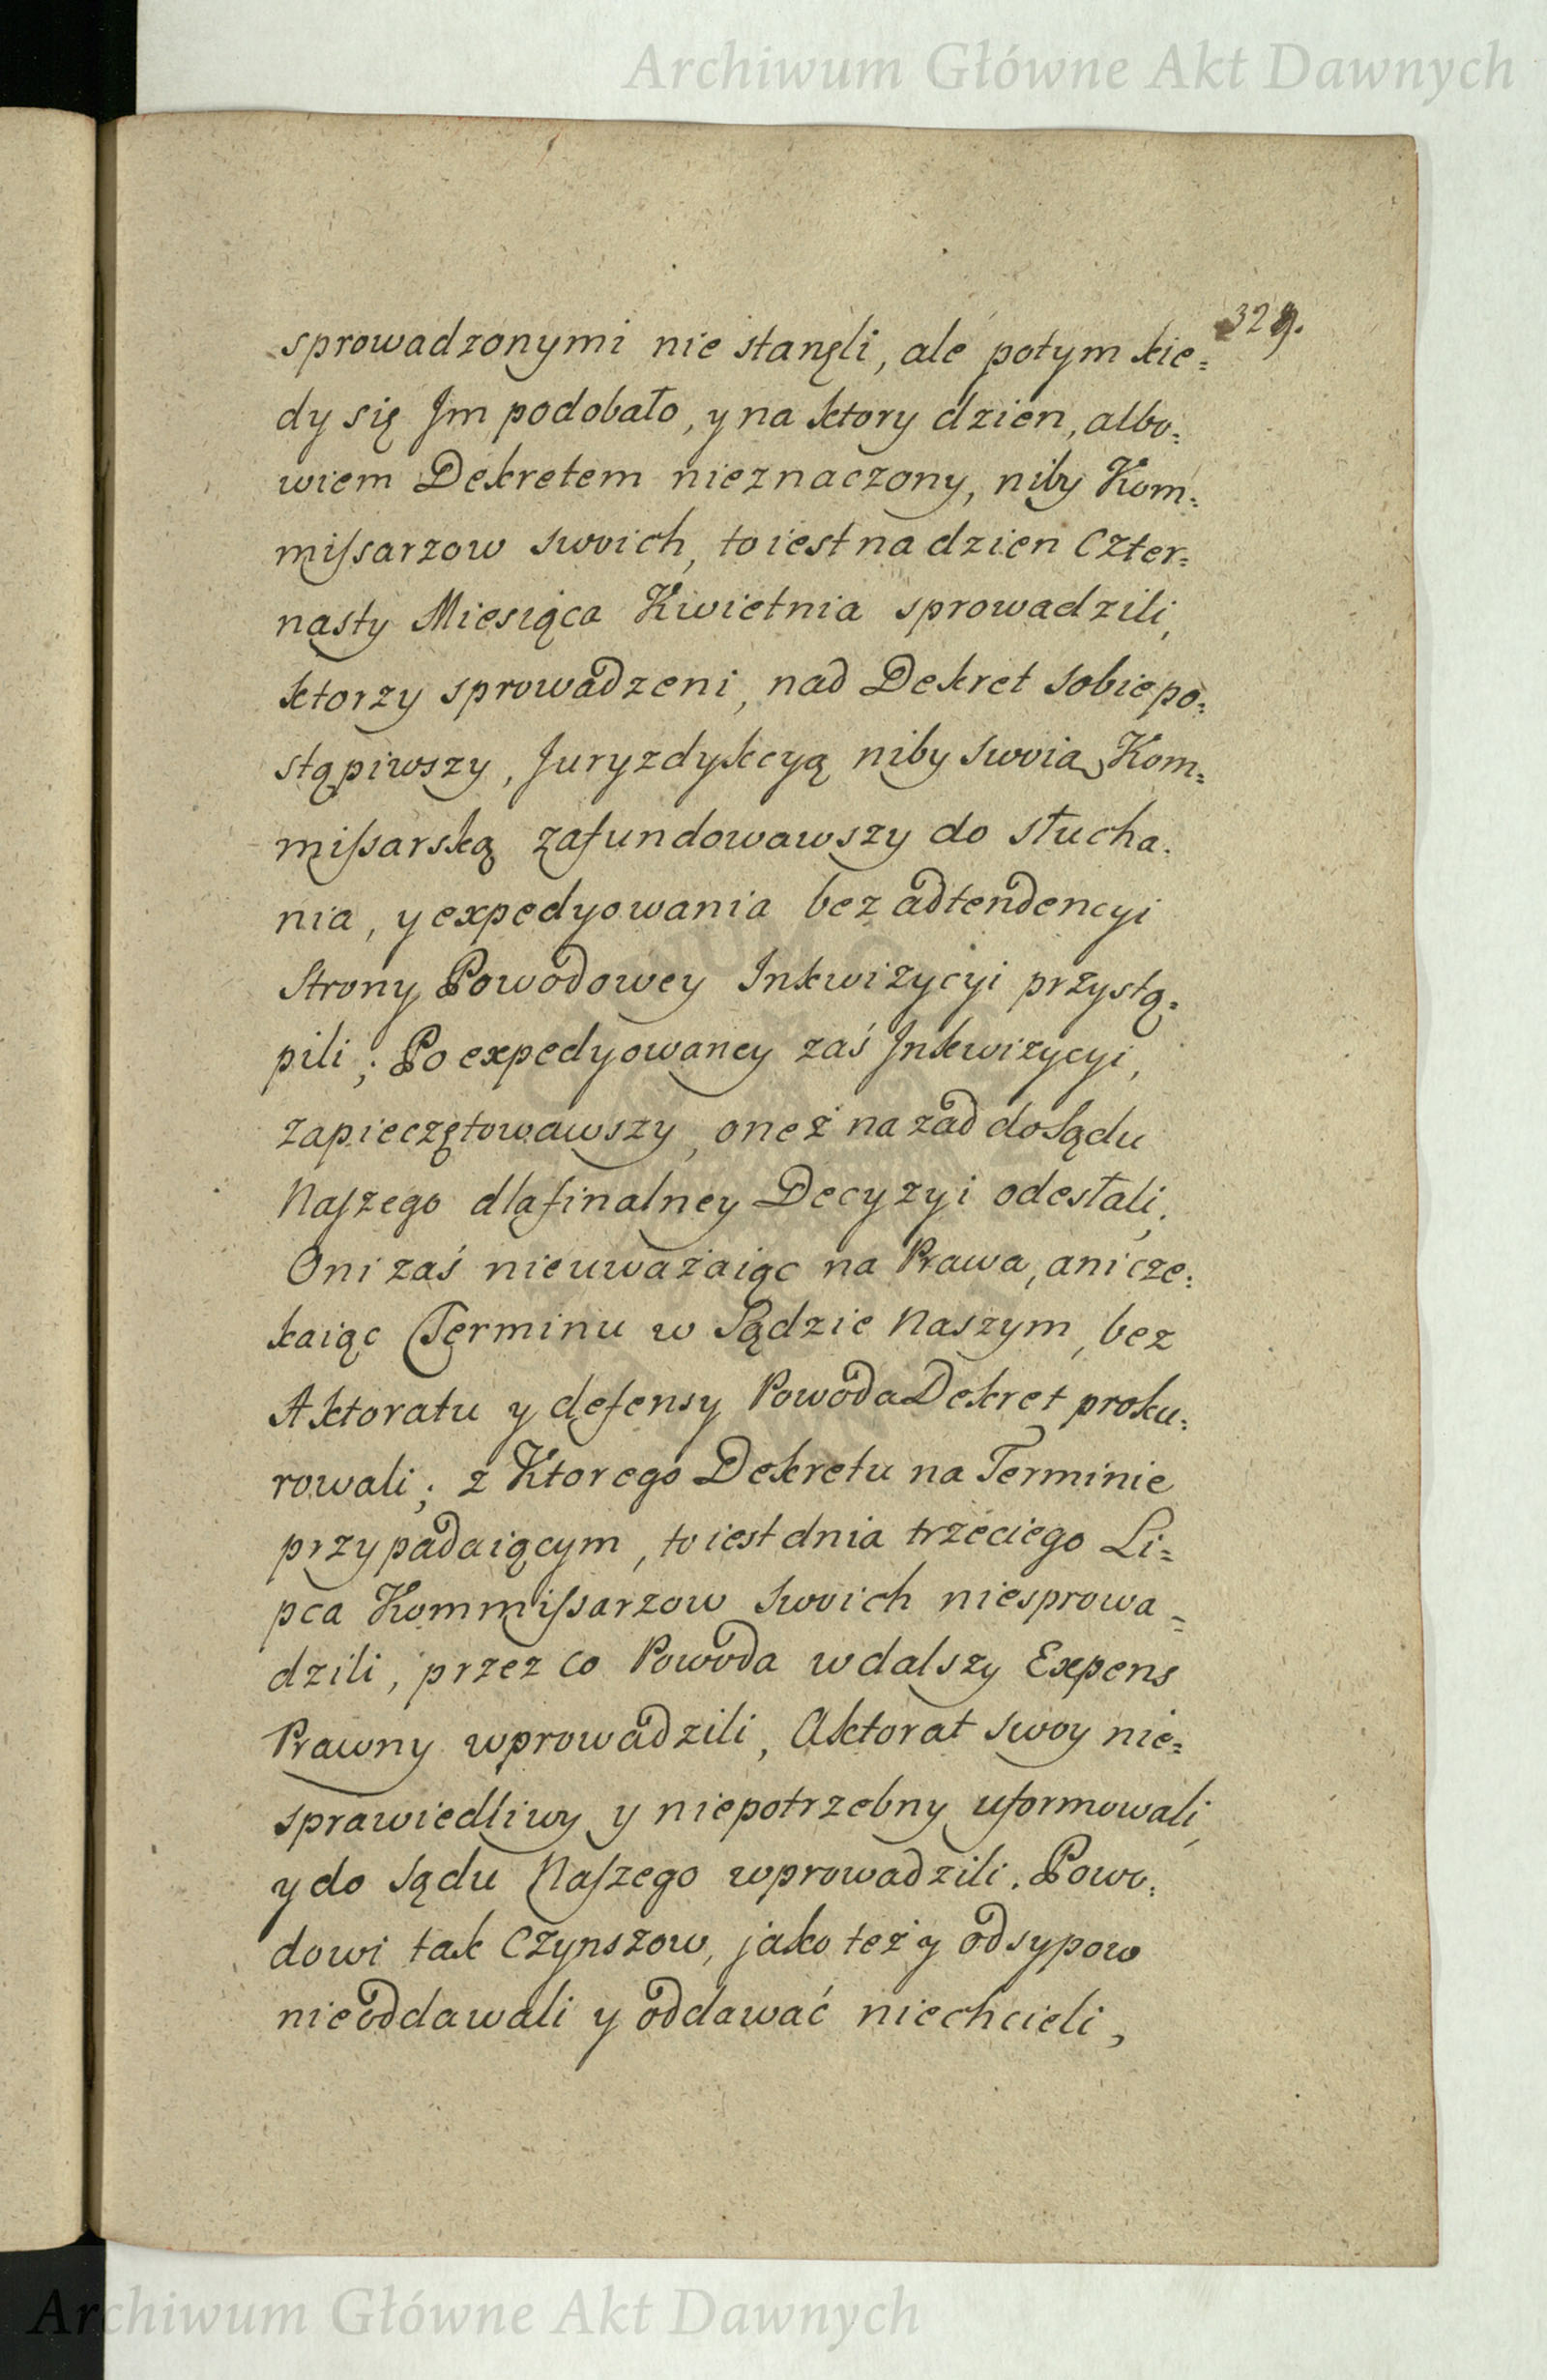 Archiwum Główne Akt Dawnych
329.
sprowadzonymi nie stanęli, ale potym kie=
dy się Jm podobało, y na ktory dzien, albo=
wiem Dekretem nieznaczony, niby Kom=
missarzow swoich, to iest na dzien Czter=
nasty Miesiąca Kwietnia sprowadzili,
ktorzy sprowadzeni, nad Dekret sobie po=
stąpiwszy, Juryzdykcyą niby swoią Kom=
missarską zafundowawszy do słucha=
nia, y expedyowania bez adtendencyi
Strony Powodowey Inkwizycyi przystą=
pili; Po expedyowaney zaś Jnkwizycyi,
zapieczętowawszy, oneż nazad do Sądu
Naszego dla finalney Decyzyi odesłali,
Oni zaś nieuważaiąc na Prawa, ani cze=
kaiąc Terminu w Sądzie Naszym, bez
Aktoratu y defensy Powoda Dekret proku=
rowali; z Ktorego Dekretu na Terminie
przypadaiącym, to iest dnia trzeciego Li=
pca Kommissarzow swoich niesprowa=
dzili, przez co Powoda w dalszy Expens
Prawny wprowadzili, Aktorat swoy nie=
sprawiedliwy y niepotrzebny uformowali,
y do Sądu Naszego wprowadzili. Powo=
dowi tak Czynszow, jako też y odsypow
nieoddawali y oddawać niechcieli,
Archiwum Główne Akt Dawnych